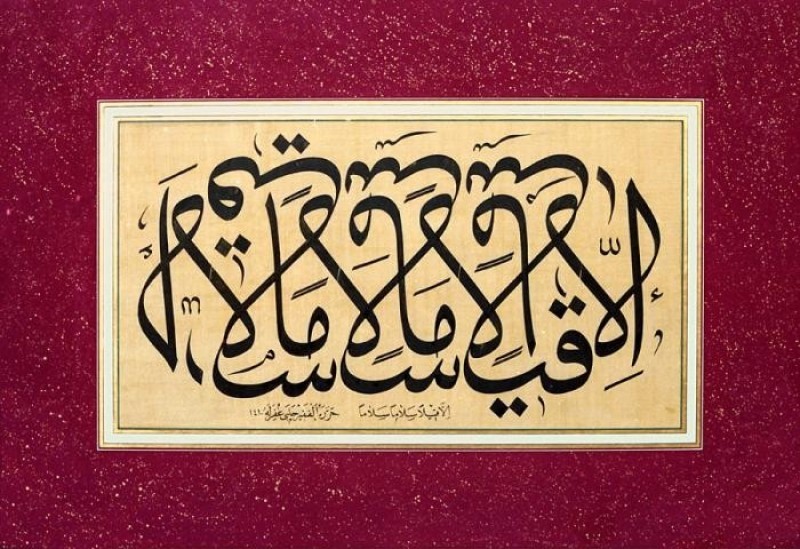 إِلَّا قِيلًا سَلَامًا سَلَامًا
إلا قيلا سلاما سلاما حرره الفقير چلبي غفر له